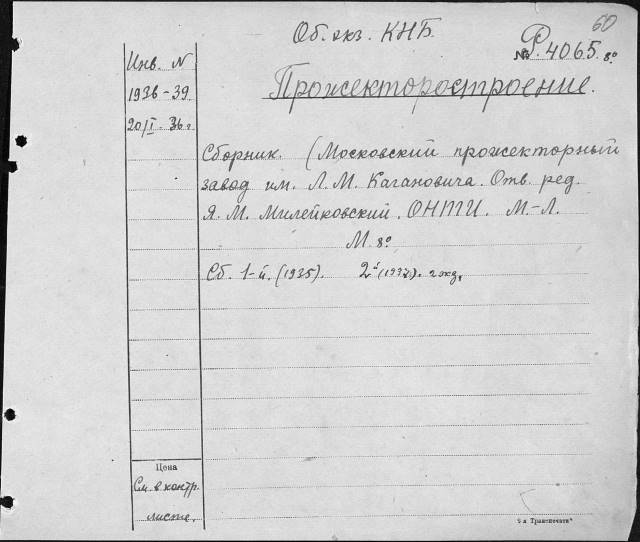 60
Об. экз. КНБ.
№ Р. 4065. 8°
Прожекторостроение.
Инв. N
1936-39
20/I. 36 г.
Сборник. (Московский прожекторный
завод им. Л. М. Кагановича. Отв. ред.
Я. М. Милейковский. ОНТИ. М.-Л.
М. 8°
Сб. 1-й. (1935). 2й (1937). 2 экз.
Цена
См. в контр.
листе.
9 я Транспечати"